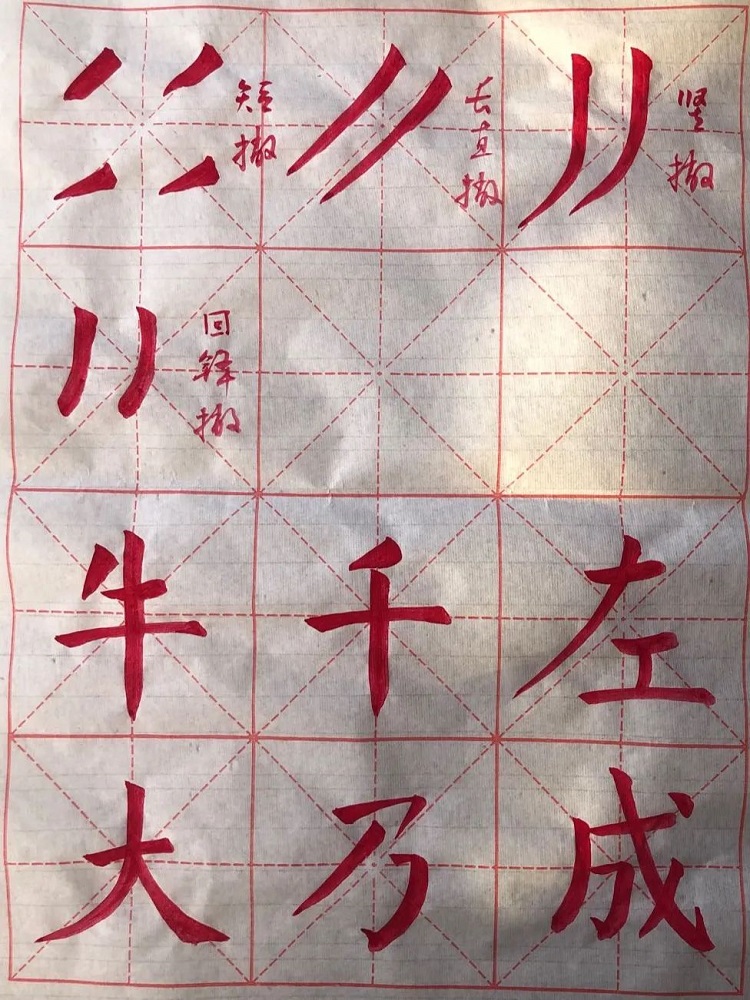 短撇
长直撇
竖撇
回锋撇
牛千左
大乃成